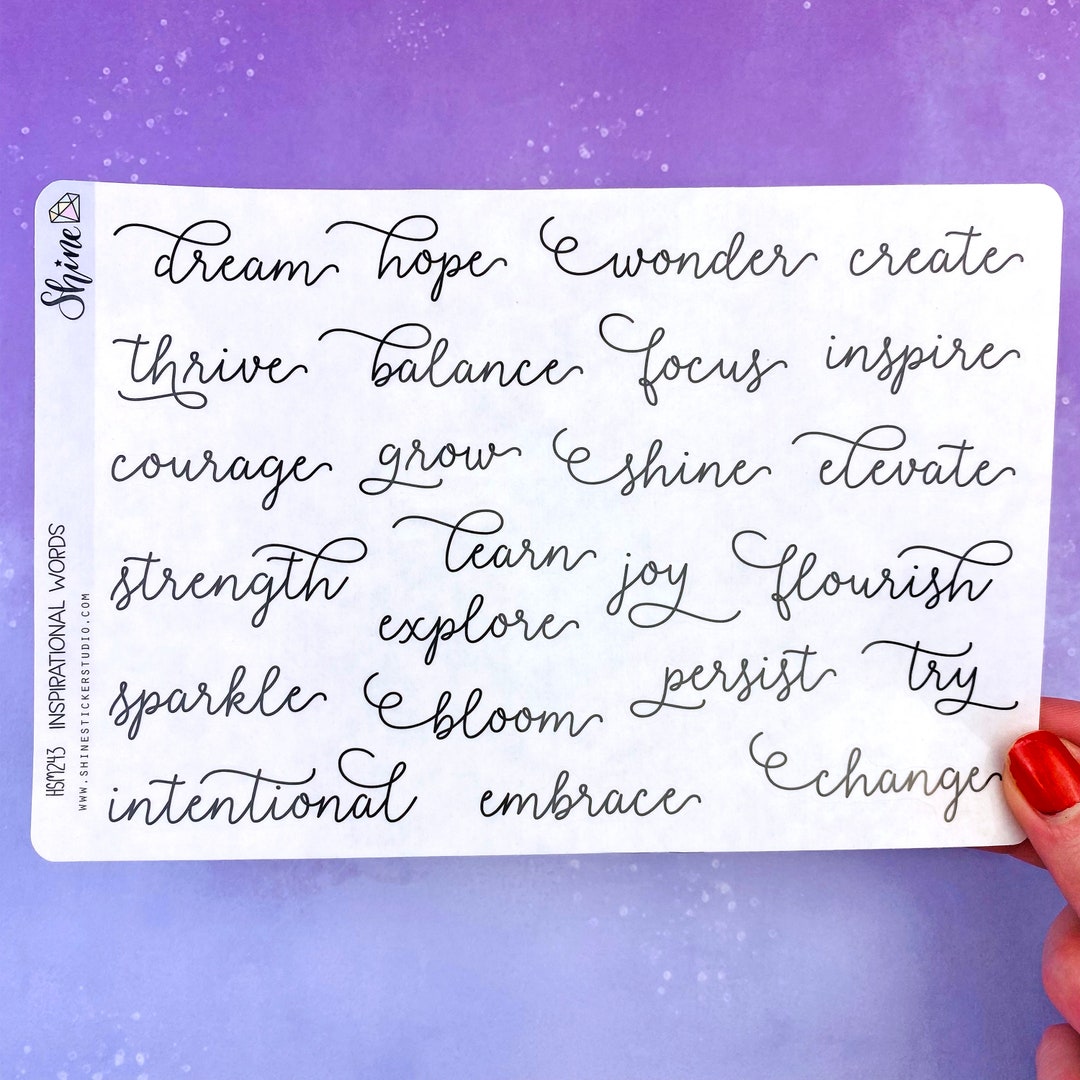 Shine
HSM243 INSPIRATIONAL WORDS
WWW.SHINESTICKERSTUDIO.COM
dream hope wonder create
thrive balance focus inspire
courage grow shine elevate
strength learn joy flourish
explore
sparkle bloom persist try
intentional embrace change